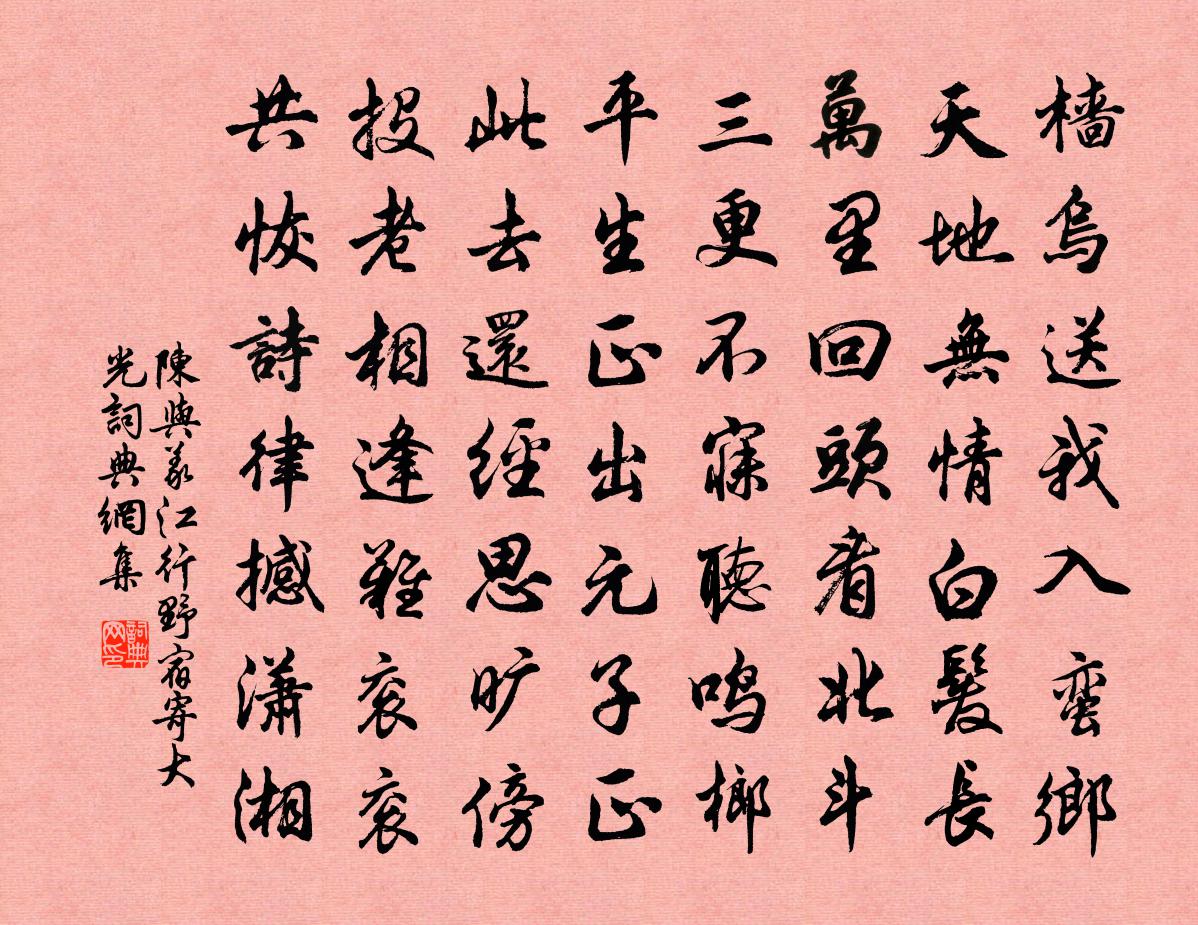 檣烏送我入蛮鄉
天地無情白髮長
萬里回頭看北斗
三更不寐聽鳴榔
平生正出元子正
此去還經思旷傍
投老相逢難衮衮
共恢詩律撼瀟湘
陳與義江行野宿寄大
光詞典網集
詞典
网印